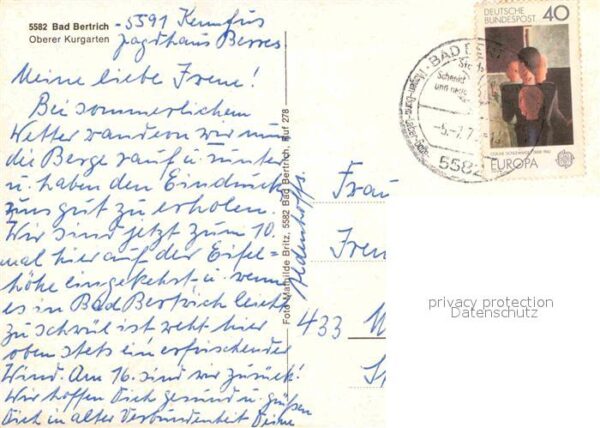 5582 Bad Bertrich
Oberer Kurgarten
- 5591 Kennfus
Jagdhaus Berres
Meine liebe Irene!
Bei sommerlichem
Wetter wandern wir nun
die Berge rauf u. runter
u. haben den Eindruck
uns gut zu erholen.
Wir sind jetzt zum 10.
mal hier auf der Eifel=
höhe eingekehrt u. wenn
es in Bad Bertrich leicht
zu schwül ist weht hier
oben stets ein erfrischender
Wind. Am 16. sind wir zurück!
Wir hoffen Dich gesund u. grüßen
Dich in alter Verbundenheit Deine
Foto Mathilde Britz, 5582 Bad Bertrich, Ruf 278
Frau
Iren
433 M
DEUTSCHE
BUNDESPOST 40
EUROPA
BAD
5582
privacy protection
Datenschutz